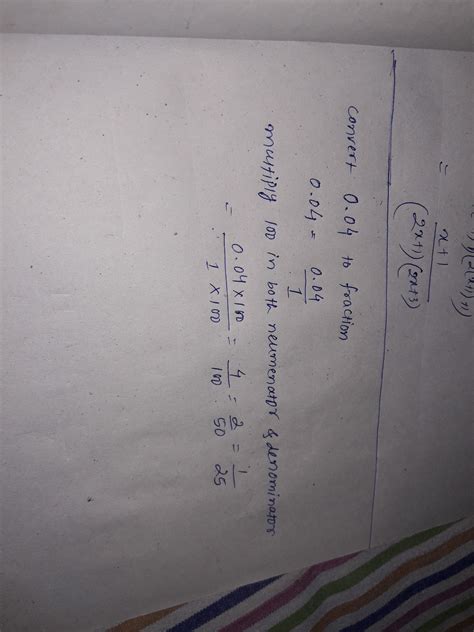 = x+1 / (2x+1)(2x+3)
convert 0.04 to fraction
0.04 = 0.04 / 1
multiply 100 in both neumenator & denominator
= 0.04 x 100 / 1 x 100 = 4 / 100 = 2 / 50 = 1 / 25